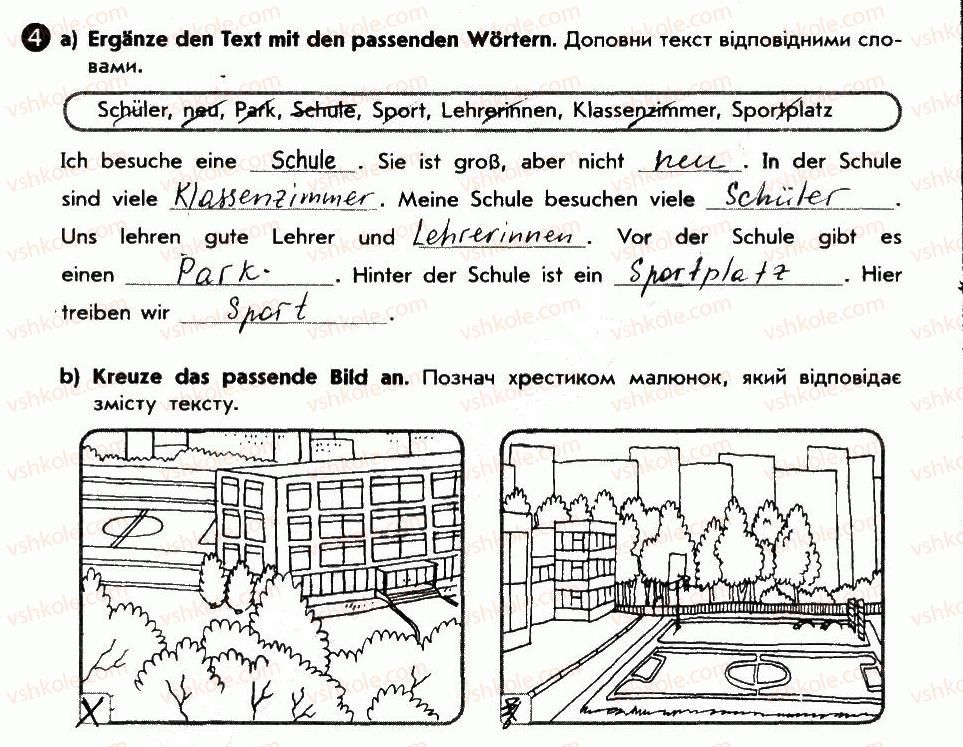 4 a) Ergänze den Text mit den passenden Wörtern. Доповни текст відповідними сло-
вами.
Schüler, neu, Park, Schule, Sport, Lehrerinnen, Klassenzimmer, Sportplatz
Ich besuche eine Schule. Sie ist groß, aber nicht neu. In der Schule
sind viele Klassenzimmer. Meine Schule besuchen viele Schüler.
Uns lehren gute Lehrer und Lehrerinnen. Vor der Schule gibt es
einen Park. Hinter der Schule ist ein Sportplatz. Hier
treiben wir Sport.
b) Kreuze das passende Bild an. Познач хрестиком малюнок, який відповідає
змісту тексту.
X